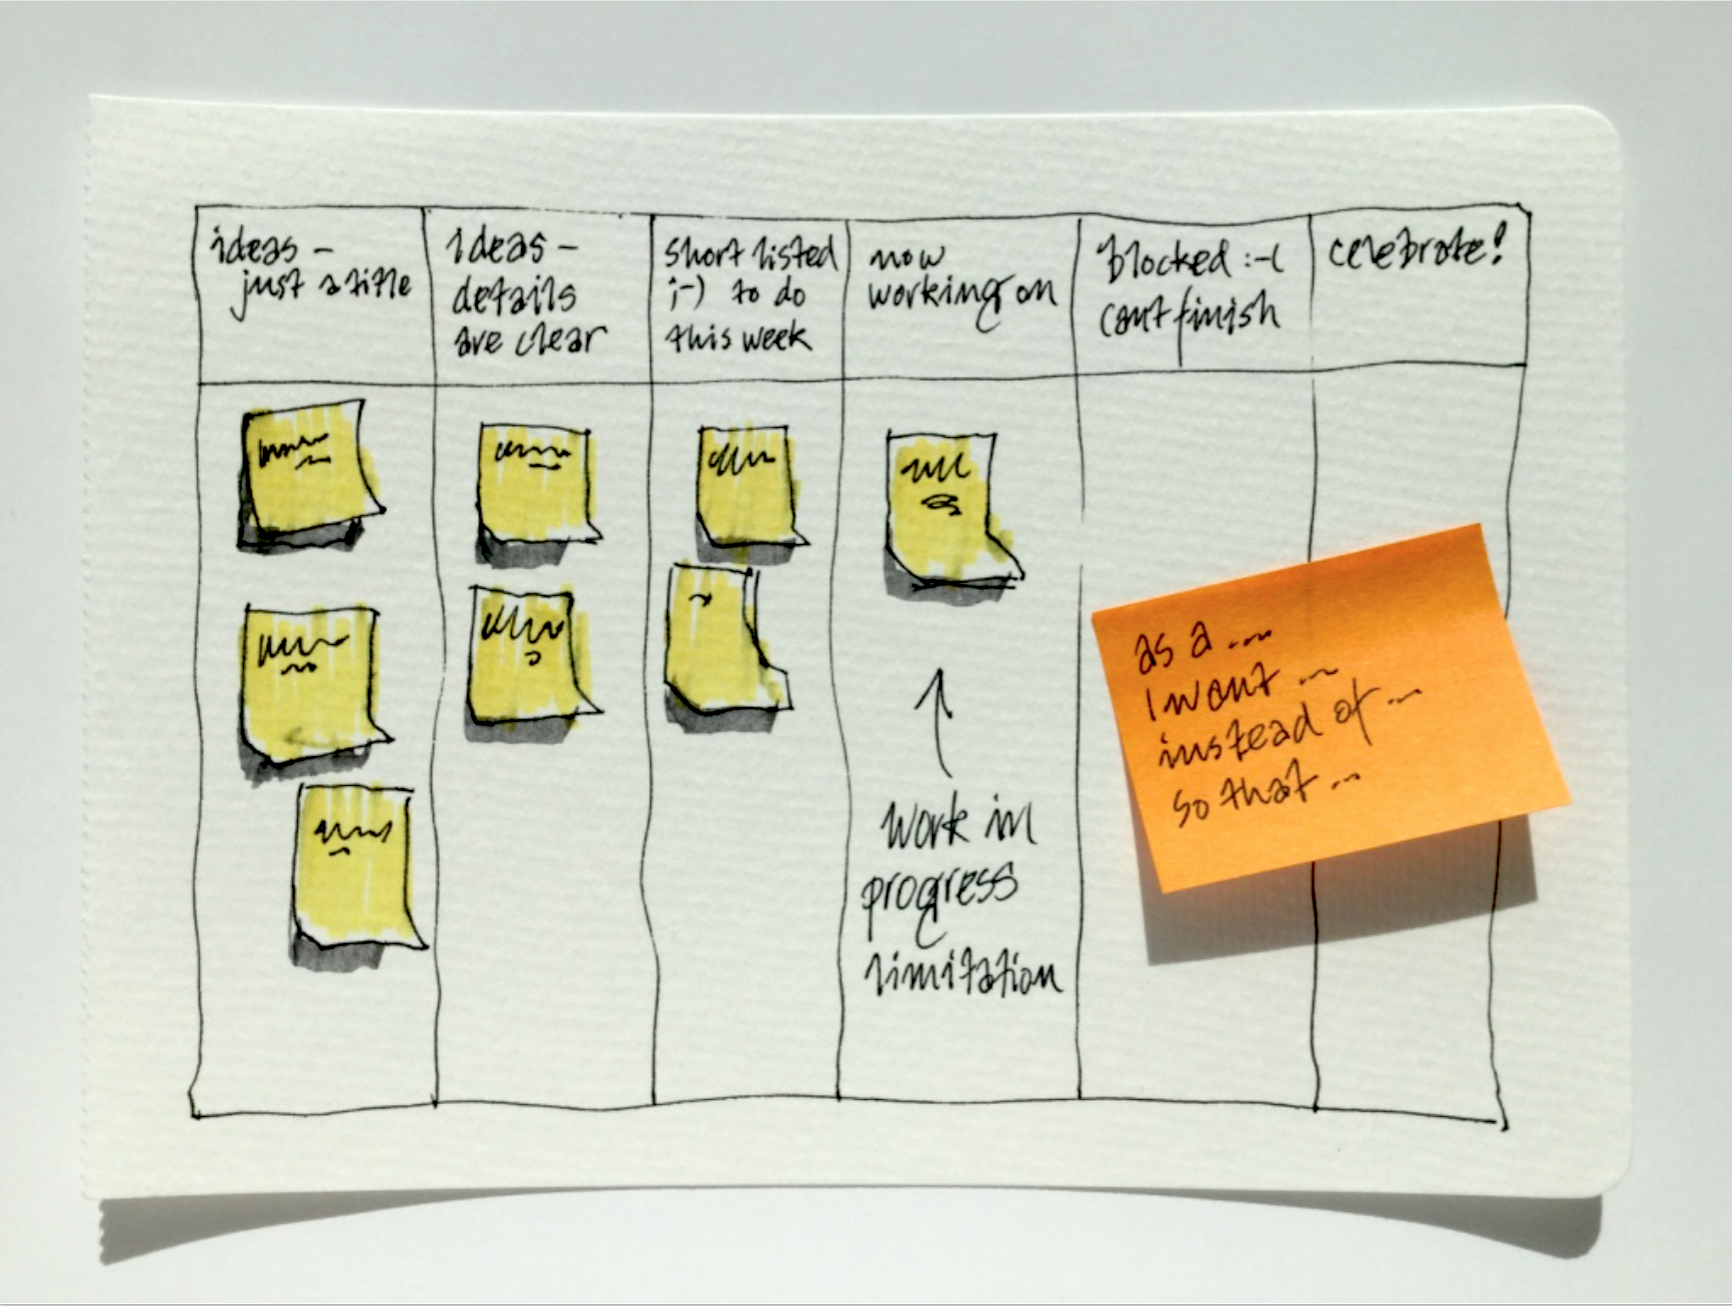 ideas -
just a title
ideas -
details
are clear
short listed
;-) to do
this week
now
working on
blocked :-(
cant finish
celebrate!
work in
progress
limitation
as a ...
I want ...
instead of ...
so that ...